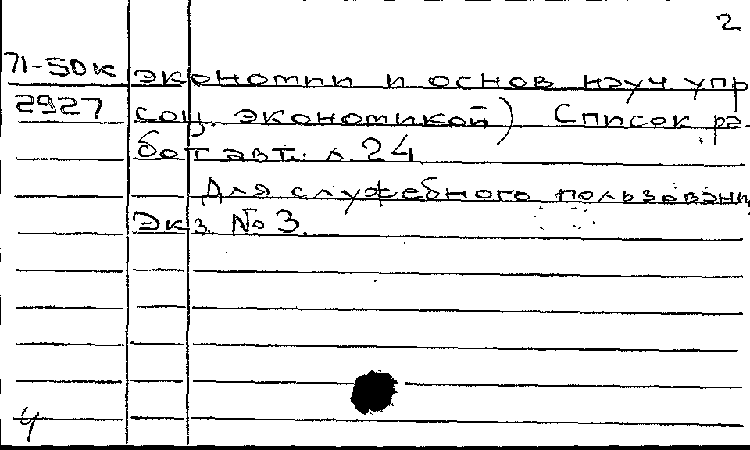 2
71-50к экономии и основ науч упр
2927 соц. экономикой) Список ра
бот авт.: л. 24
Для служебного пользовани
Экз № 3.
4